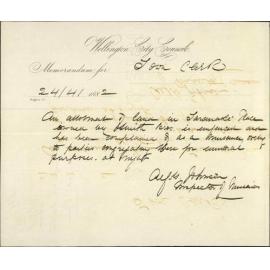 Wellington City Council
Memorandum for Town Clerk
24/4/1882
An allotment of land in Taranaki Place
owned by Bros. is unfenced and
has been complained of as a nuisance owing
to parties congregating there for immoral
purposes at night
Johnson
Inspector of Nuisances